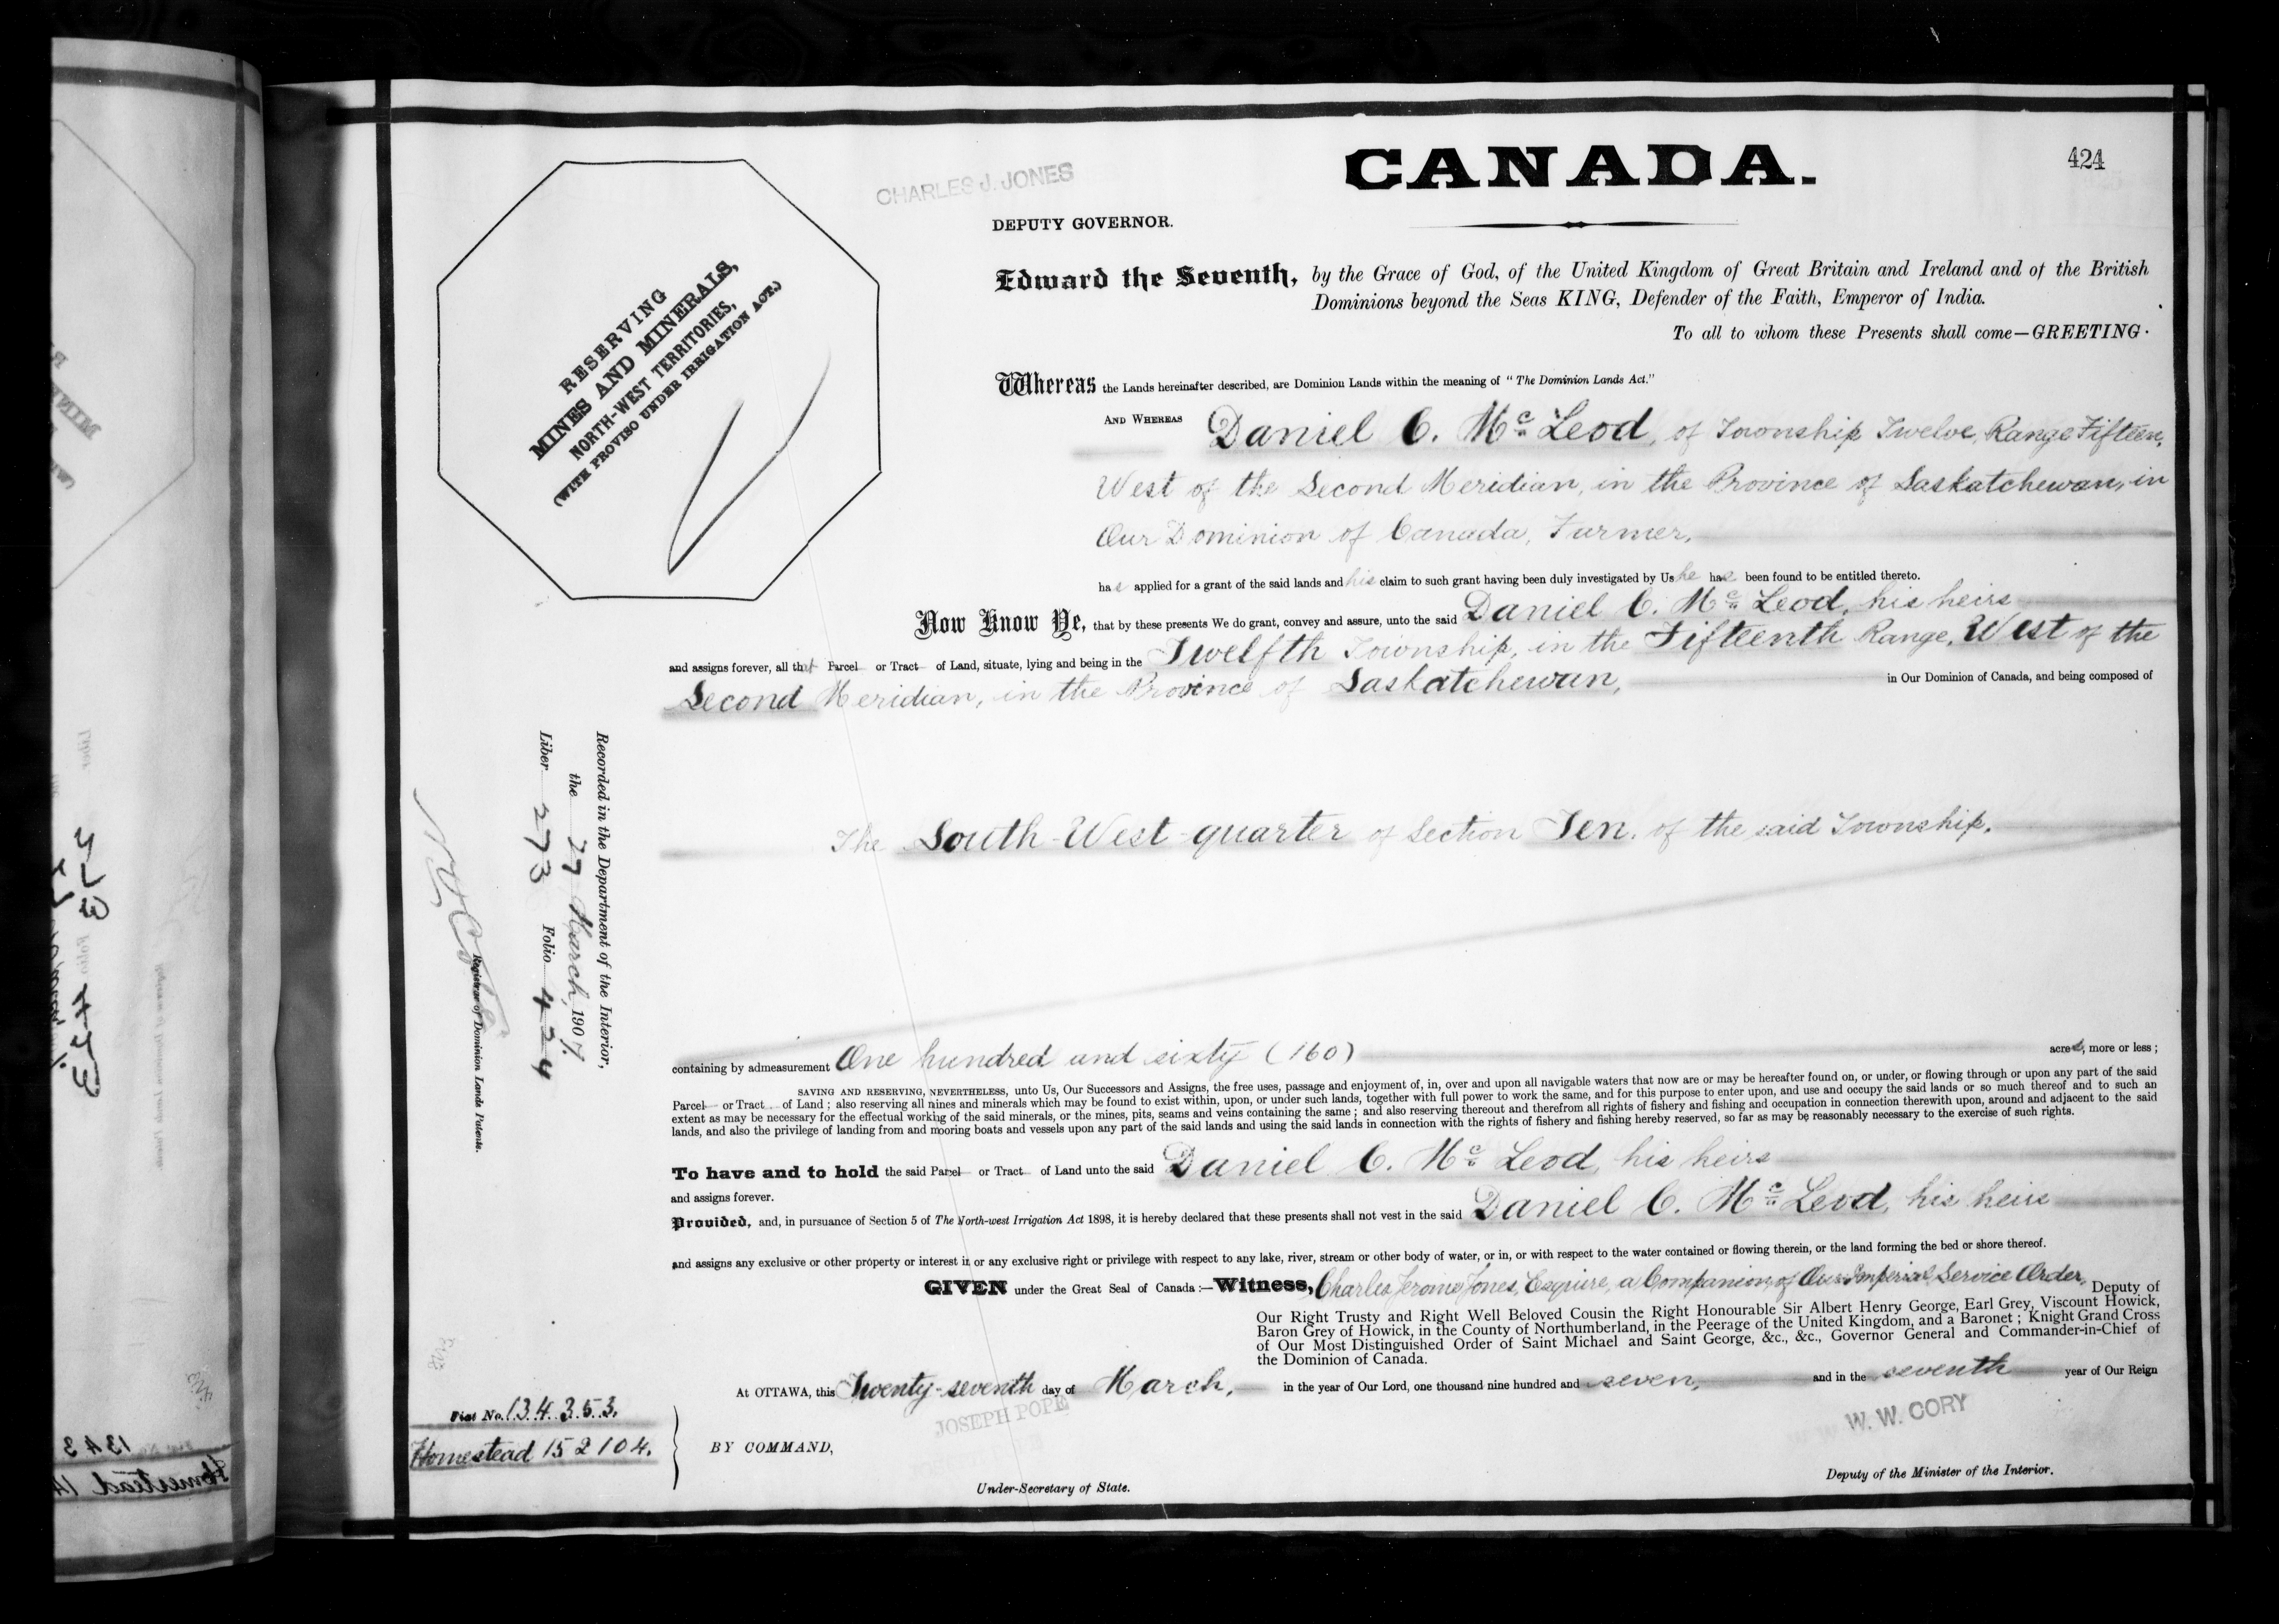 424
CANADA.
CHARLES J. JONES
DEPUTY GOVERNOR.
RESERVING
MINES AND MINERALS,
NORTH-WEST TERRITORIES,
(WITH PROVISO UNDER IRRIGATION ACT.)
Edward the Seventh, by the Grace of God, of the United Kingdom of Great Britain and Ireland and of the British
Dominions beyond the Seas KING, Defender of the Faith, Emperor of India.
To all to whom these Presents shall come—GREETING.
Whereas the Lands hereinafter described, are Dominion Lands within the meaning of "The Dominion Lands Act."
AND WHEREAS Daniel C. Mc Leod, of Township Twelve, Range Fifteen,
West of the Second Meridian, in the Province of Saskatchewan, in
Our Dominion of Canada, Farmer,
has applied for a grant of the said lands and his claim to such grant having been duly investigated by Us he has been found to be entitled thereto.
Now Know Ye, that by these presents We do grant, convey and assure, unto the said Daniel C. Mc Leod, his heirs
and assigns forever, all that Parcel or Tract of Land, situate, lying and being in the Twelfth Township, in the Fifteenth Range, West of the
Second Meridian, in the Province of Saskatchewan, in Our Dominion of Canada, and being composed of
The South-West quarter of Section Ten, of the said Township.
containing by admeasurement One hundred and sixty (160) acres, more or less;
SAVING AND RESERVING, NEVERTHELESS, unto Us, Our Successors and Assigns, the free uses, passage and enjoyment of, in, over and upon all navigable waters that now are or may be hereafter found on, or under, or flowing through or upon any part of the said
Parcel or Tract of Land; also reserving all mines and minerals which may be found to exist within, upon, or under such lands, together with full power to work the same, and for this purpose to enter upon, and use and occupy the said lands or so much thereof and to such an
extent as may be necessary for the effectual working of the said minerals, or the mines, pits, seams and veins containing the same; and also reserving thereout and therefrom all rights of fishery and fishing and occupation in connection therewith upon, around and adjacent to the said
lands, and also the privilege of landing from and mooring boats and vessels upon any part of the said lands and using the said lands in connection with the rights of fishery and fishing hereby reserved, so far as may be reasonably necessary to the exercise of such rights.
To have and to hold the said Parcel or Tract of Land unto the said Daniel C. Mc Leod, his heirs
and assigns forever.
Provided, and, in pursuance of Section 5 of The North-west Irrigation Act 1898, it is hereby declared that these presents shall not vest in the said Daniel C. Mc Leod, his heirs
and assigns any exclusive or other property or interest in or any exclusive right or privilege with respect to any lake, river, stream or other body of water, or in, or with respect to the water contained or flowing therein, or the land forming the bed or shore thereof.
GIVEN under the Great Seal of Canada:—Witness, Charles Jerome Jones, Esquire, a Companion of Our Imperial Service Order, Deputy of
Our Right Trusty and Right Well Beloved Cousin the Right Honourable Sir Albert Henry George, Earl Grey, Viscount Howick,
Baron Grey of Howick, in the County of Northumberland, in the Peerage of the United Kingdom, and a Baronet; Knight Grand Cross
of Our Most Distinguished Order of Saint Michael and Saint George, &c., &c., Governor General and Commander-in-Chief of
the Dominion of Canada.
At OTTAWA, this Twenty-seventh day of March, in the year of Our Lord, one thousand nine hundred and seven, and in the seventh year of Our Reign
JOSEPH POPE
W. W. CORY
BY COMMAND,
Under-Secretary of State.
Deputy of the Minister of the Interior.
Recorded in the Department of the Interior,
the 27 March, 1907.
Liber 273 Folio 424
Registrar of Dominion Lands Patents.
Fiat No. 134353.
Homestead 152104.